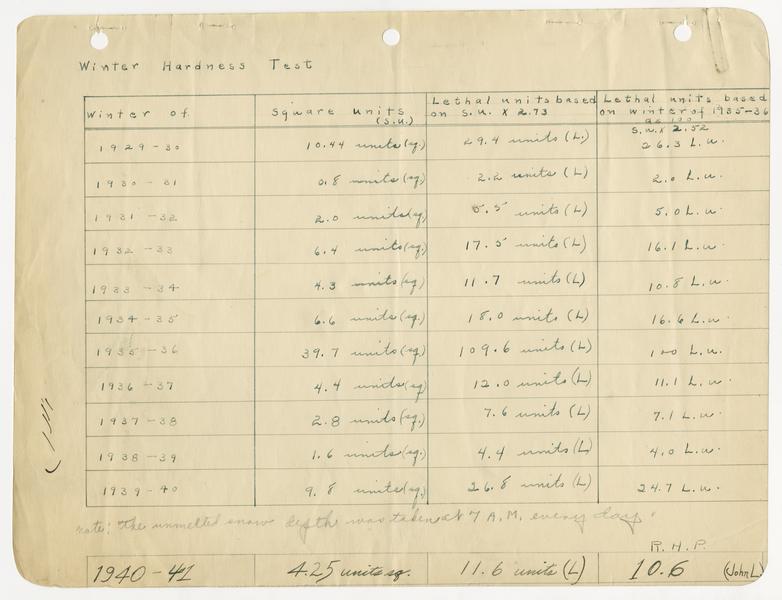 Winter Hardness Test
Winter of Square units (S.U.) Lethal units based on S.U. X 2.73 Lethal units based on winter of 1935-36 as 100 S.U. X 2.52
1929-30 10.44 units (sq.) 29.4 units (L.) 26.3 L.u.
1930-31 0.8 units (sq.) 2.2 units (L) 2.0 L.u.
1931-32 2.0 units (sq.) 5.5 units (L) 5.0 L.u.
1932-33 6.4 units (sq.) 17.5 units (L) 16.1 L.u.
1933-34 4.3 units (sq.) 11.7 units (L) 10.8 L.u.
1934-35 6.6 units (sq.) 18.0 units (L) 16.6 L.u.
1935-36 39.7 units (sq.) 109.6 units (L) 100 L.u.
1936-37 4.4 units (sq.) 12.0 units (L) 11.1 L.u.
1937-38 2.8 units (sq.) 7.6 units (L) 7.1 L.u.
1938-39 1.6 units (sq.) 4.4 units (L) 4.0 L.u.
1939-40 9.8 units (sq.) 26.8 units (L) 24.7 L.u.
note: "The unmelted snow depth was taken at 7 A.M. every day"
R.H.P.
1940-41 4.25 units sq. 11.6 units (L) 10.6 (John L.)